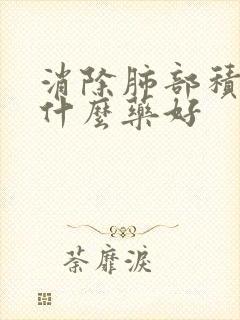 消除肺部積
什麼藥好
荼靡淚